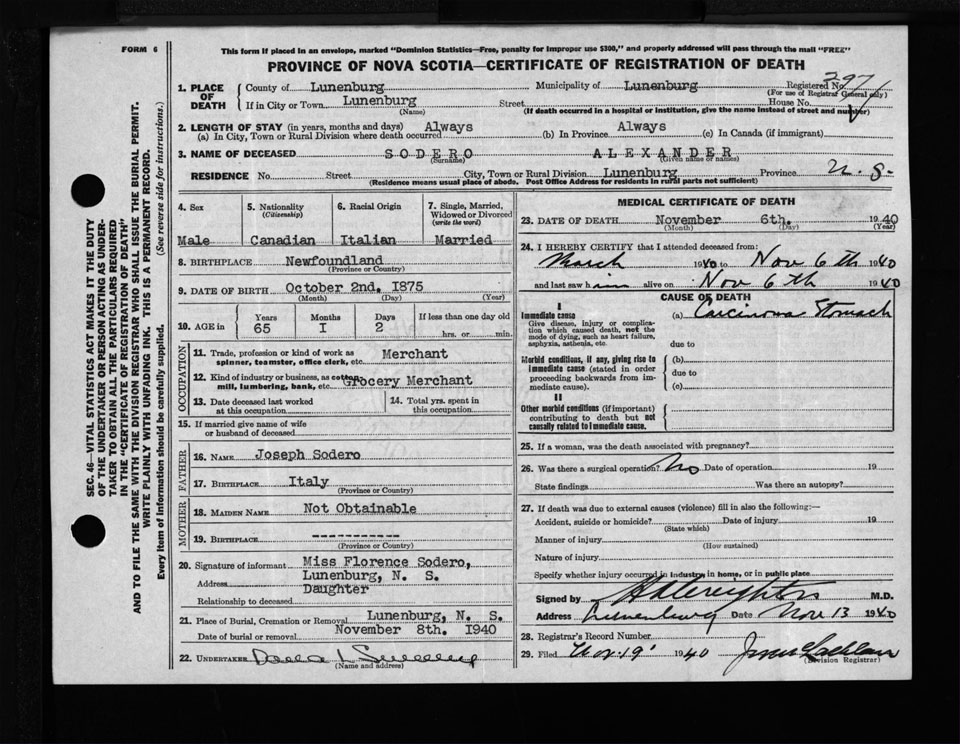 FORM 6
This form if placed in an envelope, marked "Dominion Statistics—Free, penalty for improper use $300," and properly addressed will pass through the mail "FREE"
PROVINCE OF NOVA SCOTIA—CERTIFICATE OF REGISTRATION OF DEATH
SEC. 46—VITAL STATISTICS ACT MAKES IT THE DUTY
OF THE UNDERTAKER OR PERSON ACTING AS UNDER-
TAKER TO OBTAIN ALL THE PARTICULARS REQUIRED
IN THE "CERTIFICATE OF REGISTRATION OF DEATH"
AND TO FILE THE SAME WITH THE DIVISION REGISTRAR WHO SHALL ISSUE THE BURIAL PERMIT.
WRITE PLAINLY WITH UNFADING INK. THIS IS A PERMANENT RECORD.
Every item of Information should be carefully supplied. (See reverse side for instructions.)
1. PLACE OF DEATH
County of Lunenburg Municipality of Lunenburg Registered No. 297
(For use of Registrar General only)
If in City or Town Lunenburg Street House No.
(Name) (If death occurred in a hospital or institution, give the name instead of street and number)
2. LENGTH OF STAY (in years, months and days) Always Always
(a) In City, Town or Rural Division where death occurred (b) In Province (c) In Canada (if immigrant)
3. NAME OF DECEASED SODERO ALEXANDER
(Surname) (Given name or names)
RESIDENCE No. Street City, Town or Rural Division Lunenburg Province N. S.
(Residence means usual place of abode. Post Office Address for residents in rural parts not sufficient)
4. Sex 5. Nationality (Citizenship) 6. Racial Origin 7. Single, Married, Widowed or Divorced (write the word)
Male Canadian Italian Married
8. BIRTHPLACE Newfoundland
(Province or Country)
9. DATE OF BIRTH October 2nd. 1875
(Month) (Day) (Year)
10. AGE in Years Months Days If less than one day old
65 I 2 hrs. or min.
OCCUPATION
11. Trade, profession or kind of work as spinner, teamster, office clerk, etc. Merchant
12. Kind of industry or business, as cotton mill, lumbering, bank, etc. Grocery Merchant
13. Date deceased last worked at this occupation 14. Total yrs. spent in this occupation
15. If married give name of wife or husband of deceased
FATHER
16. NAME Joseph Sodero
17. BIRTHPLACE Italy
(Province or Country)
MOTHER
18. MAIDEN NAME Not Obtainable
19. BIRTHPLACE ------------
(Province or Country)
20. Signature of informant Miss Florence Sodero,
Address Lunenburg, N. S.
Relationship to deceased Daughter
21. Place of Burial, Cremation or Removal Lunenburg, N. S.
Date of burial or removal November 8th. 1940
22. UNDERTAKER
(Name and address)
MEDICAL CERTIFICATE OF DEATH
23. DATE OF DEATH November 6th. 1940
(Month) (Day) (Year)
24. I HEREBY CERTIFY that I attended deceased from:
March 1940 to Nov 6th 1940
and last saw him alive on Nov 6th 1940
CAUSE OF DEATH
I
Immediate cause (a) Carcinoma Stomach
Give disease, injury or complica-
tion which caused death, not the
mode of dying, such as heart failure,
asphyxia, asthenia, etc.
due to
Morbid conditions, if any, giving rise to (b)
immediate cause (stated in order
proceeding backwards from im-
mediate cause).
due to
(c)
II
Other morbid conditions (if important)
contributing to death but not
causally related to immediate cause.
25. If a woman, was the death associated with pregnancy?
26. Was there a surgical operation? No Date of operation 19
State findings Was there an autopsy?
27. If death was due to external causes (violence) fill in also the following:—
Accident, suicide or homicide? Date of injury 19
(State which)
Manner of injury
(How sustained)
Nature of injury
Specify whether injury occurred in industry, in home, or in public place
Signed by Creighton M.D.
Address Lunenburg Date Nov 13 1940
28. Registrar's Record Number
29. Filed Nov. 19 1940
(Division Registrar)